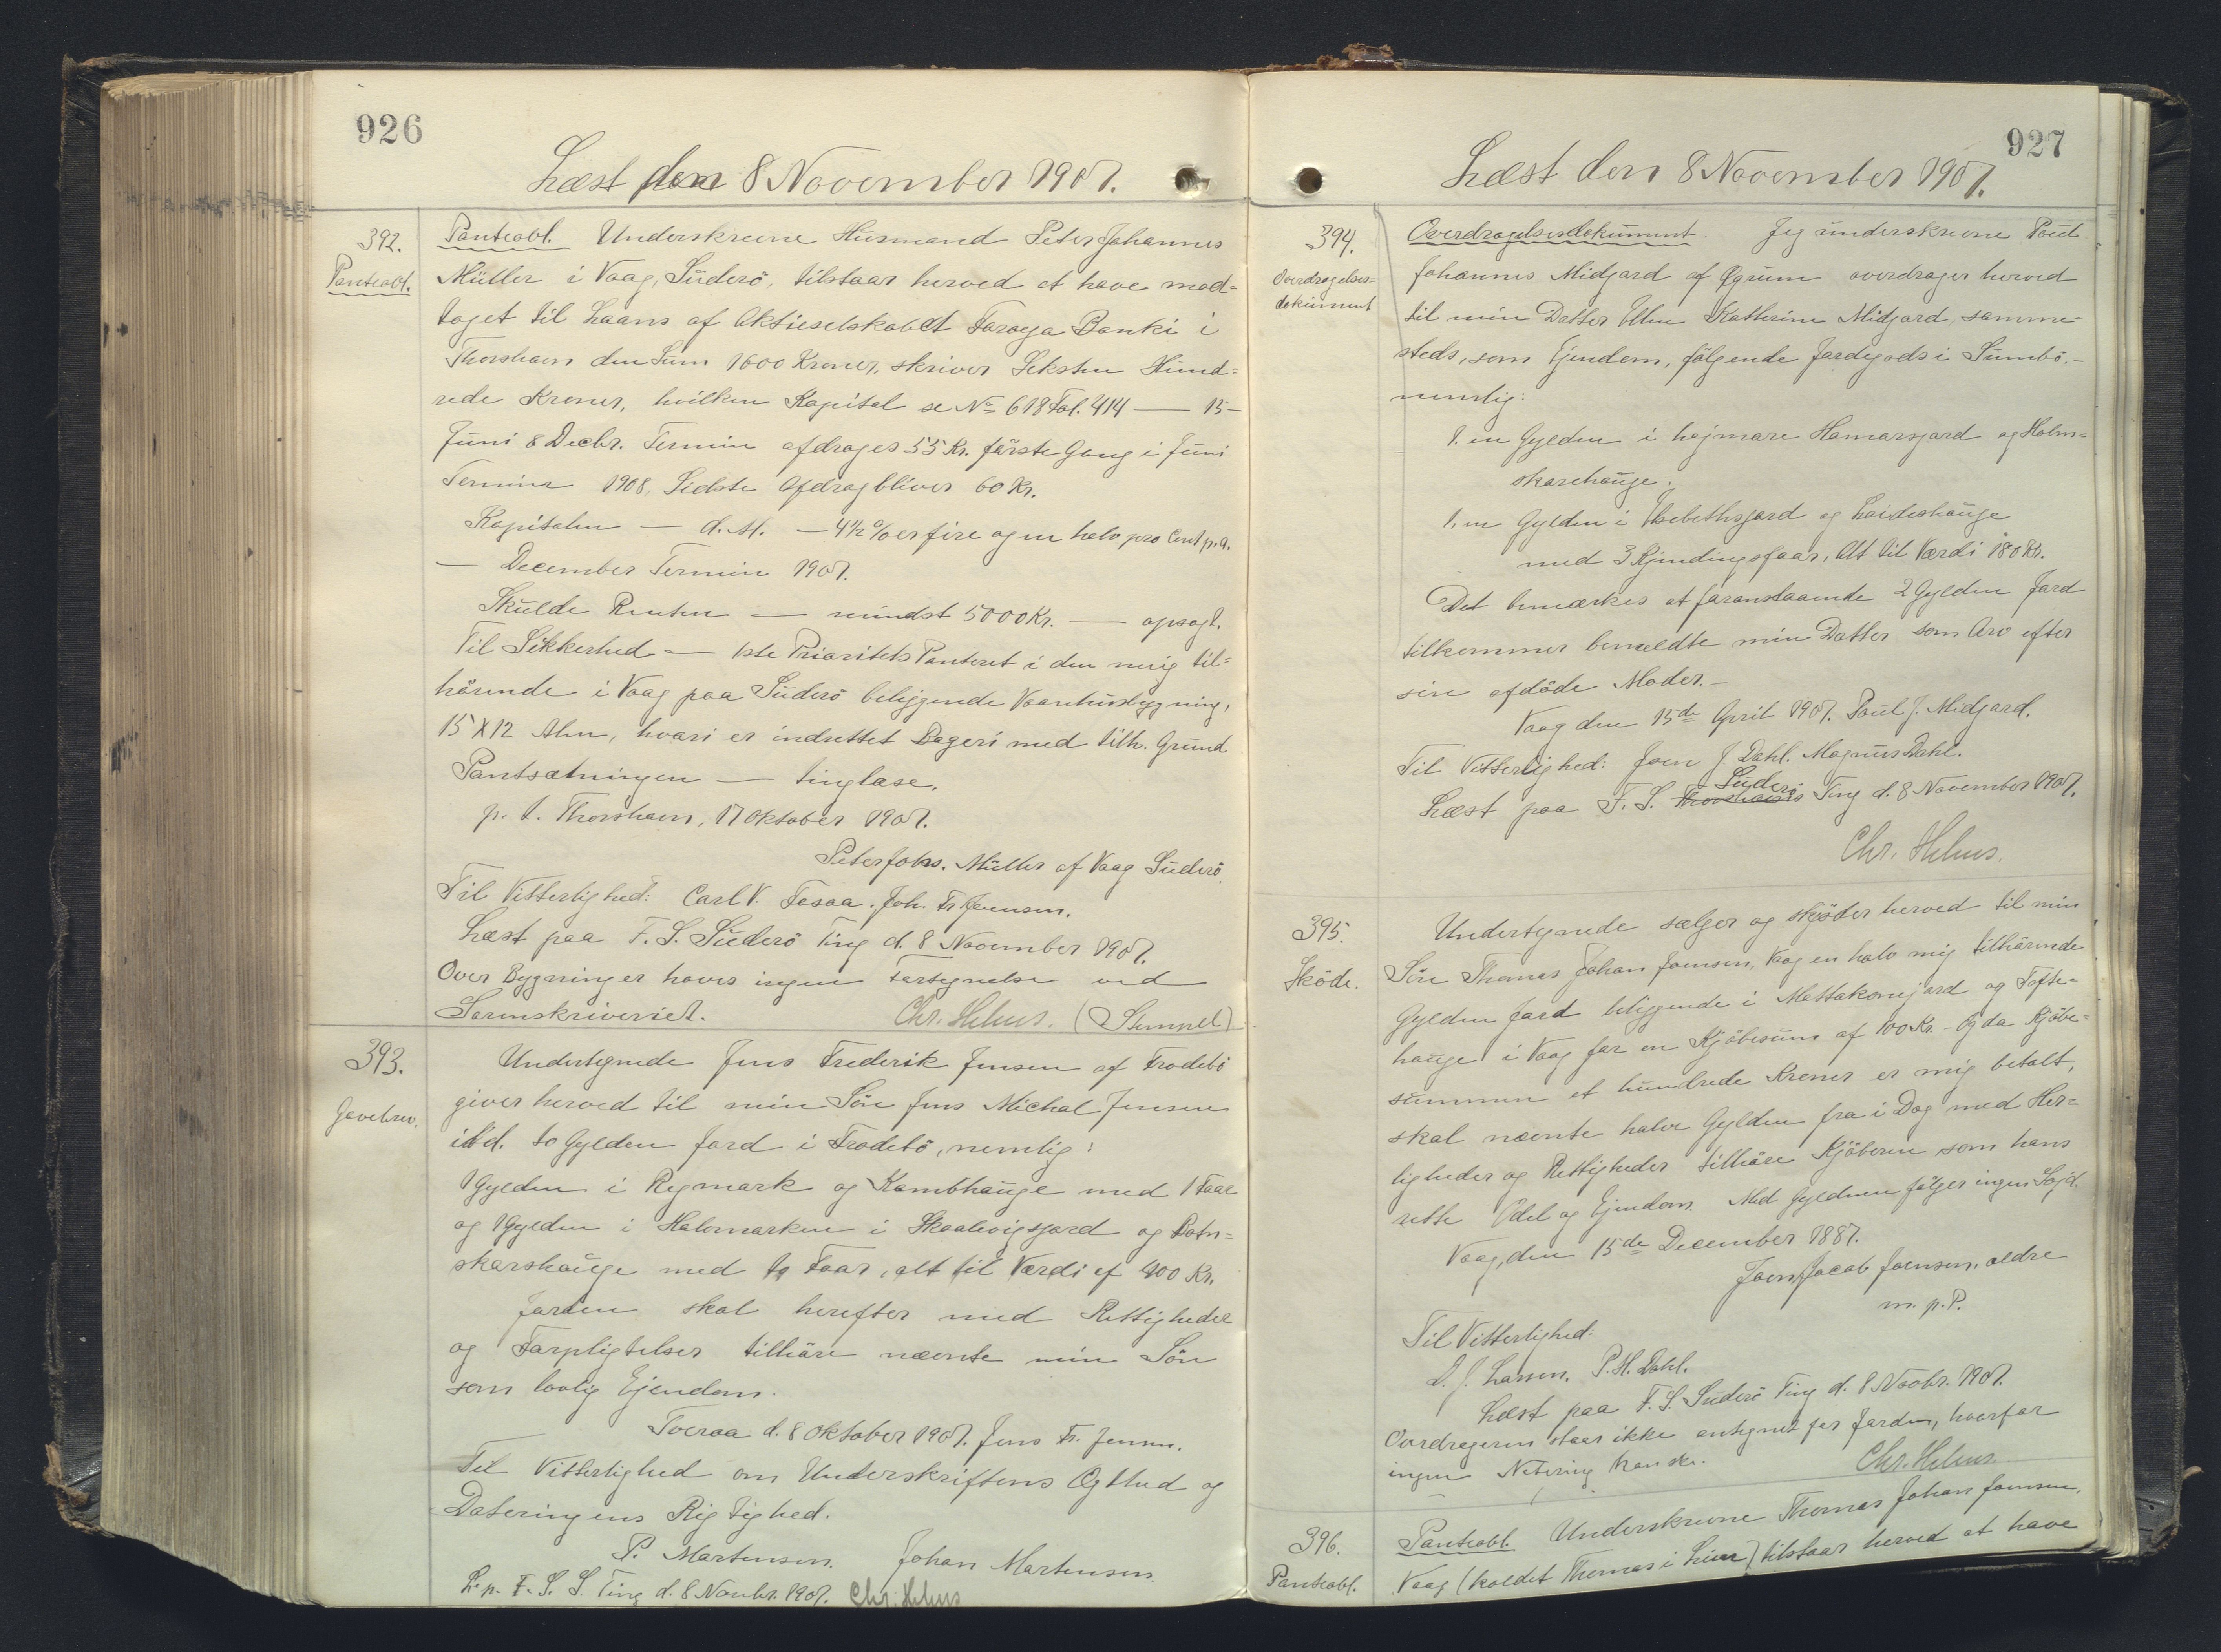 926
Læst den 8 November 1907.
392.
Panteobl.
Panteobl. Underskrevne Husmand Peter Johannes
Müller i Vaag, Suderö, tilstaar herved at have mod=
taget til Laans af Aktieselskabet Føroya Banki i
Thorshavn den Sum 1600 Kroner, skriver Seksten Hund=
rede Kroner, hvilken Kapital se No 618 Fol. 414 — 15 -
Juni & Decbr. Termin afdrages 55 Kr. förste Gang i Juni
Termin 1908, Sidste Afdrag bliver 60 Kr.
Kapitalen — d. A. — 4½ % er fire og en halv pro Cent p.a.
— December Termin 1907.
Skulde Renten — mindst 5000 Kr. — opsagt.
Til Sikkerhed — 1ste Prioritets Panteret i den mig til=
hörende i Vaag paa Suderö beliggende Vaanhusbygning,
15 X 12 Alen, hvori er indrettet Bageri med tilh. Grund
Pantsætningen — tinglæse.
p. t. Thorshavn, 17 Oktober 1907.
Peter Johs. Müller af Vaag Suderö.
Til Vitterlighed: Carl V. Joh. Fr. Joensen.
Læst paa F. S. Suderö Ting d. 8 November 1907.
Over Bygninger haves ingen Fortegnelse ved
Sorenskriveriet. Chr. Helms. (Stempel)
393.
Gavebrev.
Undertegnede Jens Frederik Jensen af Frodebö
giver herved til min Sön Jens Michal Jensen
ibid. to Gylden Jord i Frodebö, nemlig:
1 Gylden i Regmark og Kambhauge med 1 Faar
og 1 Gylden i Halvmarken i Skaalevigsjord og Botn=
skarshauge med to Faar, alt til Værdi af 400 Kr.
Jorden skal herefter med Rettigheder
og Forpligtelser tilhöre nævnte min Sön
som lovlig Ejendom.
Tveraa d. 8 Oktober 1907. Jens Fr. Jensen.
Til Vitterlighed om Underskriftens Ægthed og
Dateringens Rigtighed.
P. Mortensen. Johan Mortensen.
L. p. F. S. S. Ting d. 8 Novbr. 1907. Chr. Helms
927
Læst den 8 November 1907.
394.
Overdragelses=
dokument
Overdragelsesdokument. Jeg underskrevne Poul
Johannes Midjord af Øgrum overdrager herved
til min Datter Ellen Kathrine Midjord, samme-
steds, som Ejendom, fölgende Jordegods i Sumbö.-
nemlig:
1. en Gylden i hejmare Hamarsjord og Holm=
skarehauge.
1. en Gylden i Ilsebethsjord og Leideshauge
med 3 Kjindingsfaar. Alt til Værdi 180 Kr.
Det bemærkes at foranstaaende 2 Gylden Jord
tilkommer bemeldte min Datter som Arv efter
sin afdöde Moder.-
Vaag den 15de April 1907. Poul J. Midjord.
Til Vitterlighed: Joen J. Dahl. Magnus Dahl.
Læst paa F. S. Thorshavns Suderö Ting d. 8 November 1907.
Chr. Helms.
395.
Sköde.
Undertegnede sælger og skjöder herved til min
Sön Thomas Johan Joensen, Vaag en halv mig tilhörende
Gylden Jord beliggende i Mattakonejord og Tofte-
hauge i Vaag for en Kjöbesum af 100 Kr.- Og da Kjöbe=
summen et hundrede Kroner er mig betalt,
skal nævnte halve Gylden fra i Dag med Her=
ligheder og Rettigheder tilhöre Kjöberen som hans
rette Odel og Ejendom. Med Gyldenen fölger ingen Söjd.
Vaag, den 15de December 1887.
Joen Jacob Joensen, ældre
m. p. P.
Til Vitterlighed:
D. J. Larsen. P. H. Dahl.
Læst paa F. S. Suderö Ting d. 8 Novbr. 1907.
Overdrageren staar ikke antegnet for Jorden, hvorfor
ingen Notering kan ske. Chr. Helms.
396.
Panteobl.
Panteobl. Underskrevne Thomas Johan Joensen,
Vaag (kaldet Thomas i Liun) tilstaar herved at have